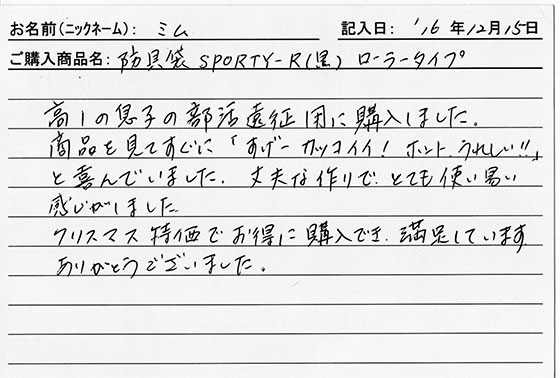 お名前(ニックネーム): ミム 記入日: '16年12月15日
ご購入商品名: 防具袋 SPORTY-R(黒) ローラータイプ
高1の息子の部活遠征用に購入しました。
商品を見てすぐに「すげーカッコイイ! ホントうれしい!!」
と喜んでいました. 丈夫な作りで とても使い易い
感じがしました
クリスマス特価でお得に購入でき、満足しています
ありがとうございました。